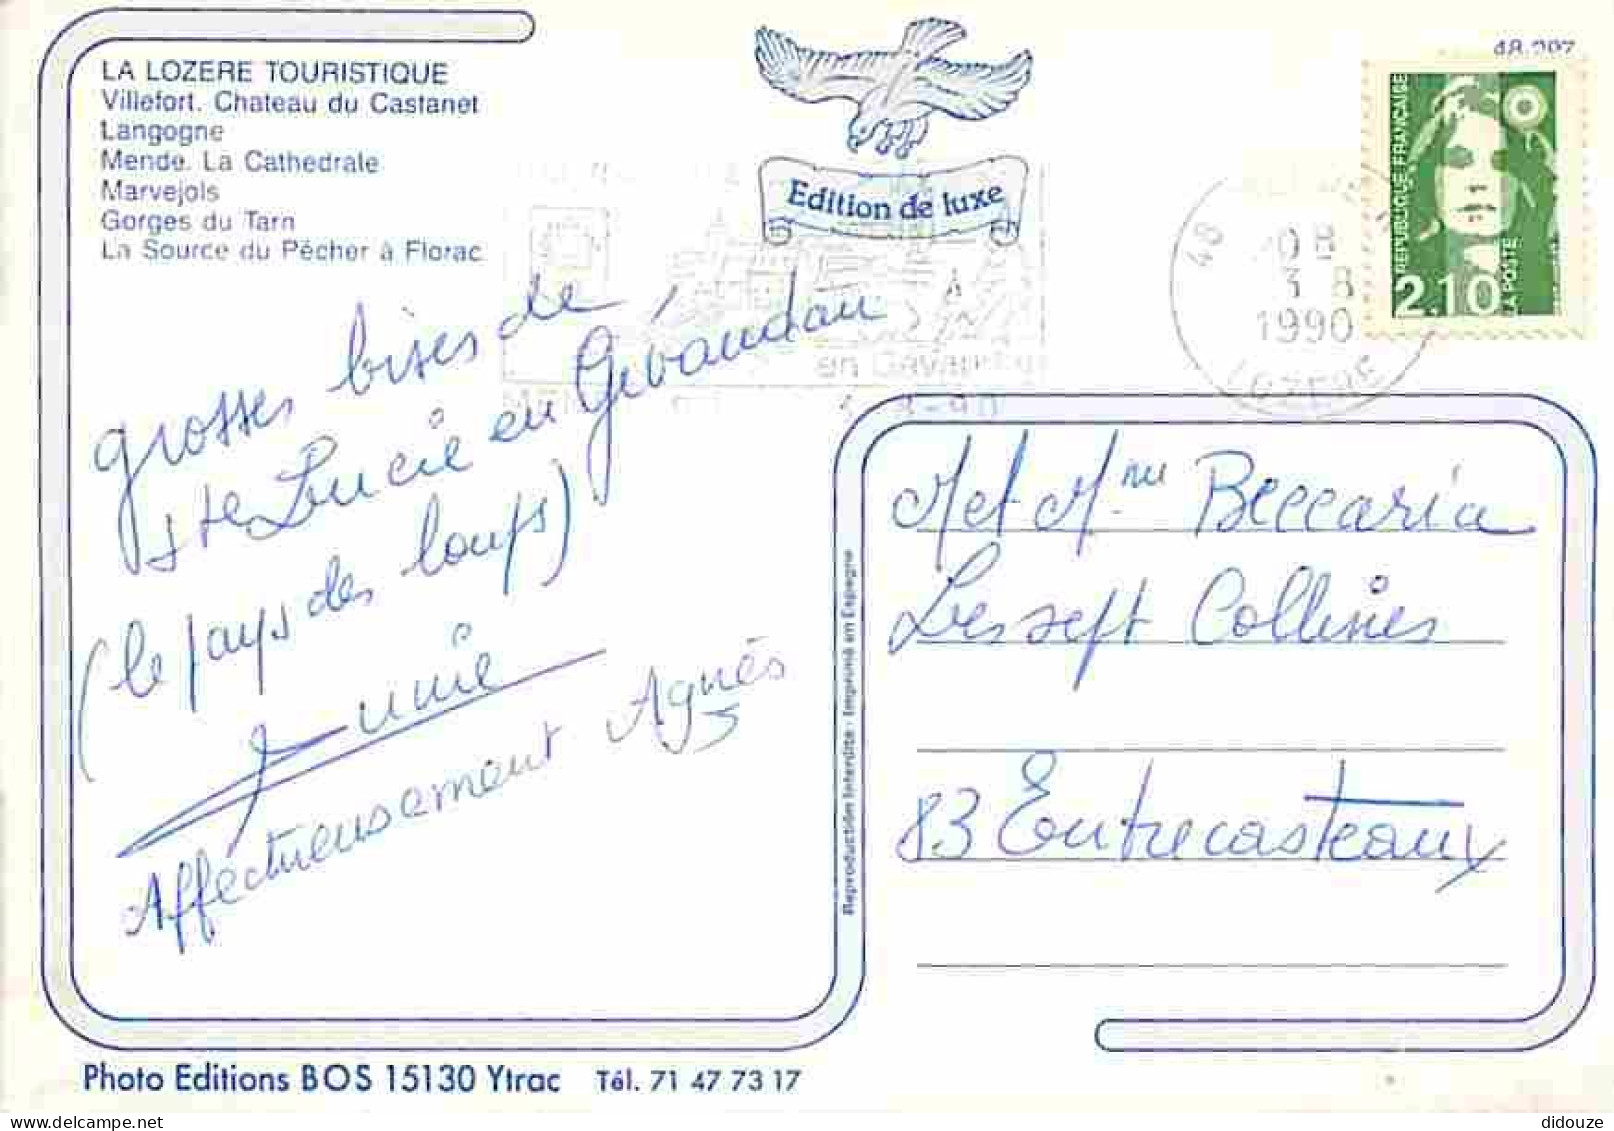 LA LOZERE TOURISTIQUE
Villefort. Chateau du Castanet
Langogne
Mende. La Cathedrale
Marvejols
Gorges du Tarn
La Source du Pécher à Florac
Edition de luxe
48.297
REPUBLIQUE FRANÇAISE
LA POSTE
2,10
48
3 8
1990
LOZERE
en Gévaudan
grosses bises de
Ste Lucie en Gévaudan
(le pays des loups)
Affectueusement Agnès
M et Mme Beccaria
Les sept Collines
83 Entrecasteaux
Reproduction Interdite - Imprimé en Espagne
Photo Editions BOS 15130 Ytrac Tél. 71 47 73 17
didouze